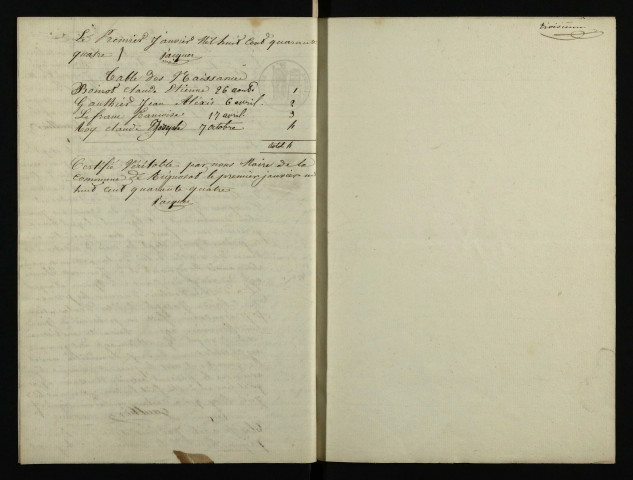 Le Premier Janvier Mil huit Cent quarante
quatre / Jacques
Table des Naissance
Boinot claude Etienne 26 avril 1
Gauthier Jean Alexis 6 avril 2
Lefranc francoise 17 avril 3
Roy claude Joseph 7 octobre 4
total 4
Certifié Véritable par nous Maire de la
commune de le premier janvier mil
huit cent quarante quatre
Jacques
troisieme